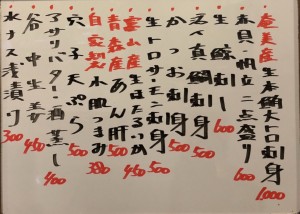 奄美産生本鮪大トロ刺身 1000
赤貝・帆立二点盛り 600
生鯨刺し 600
活〆真鯛刺身
かつお刺身 500
生トロサーモン刺 500
富山産生ほたるいか 450
青森産あん肝 500
自家製 つまみ
穴子天ぷら
アサリバター酒蒸し 400
谷中生姜 450
水ナス浅漬け 300